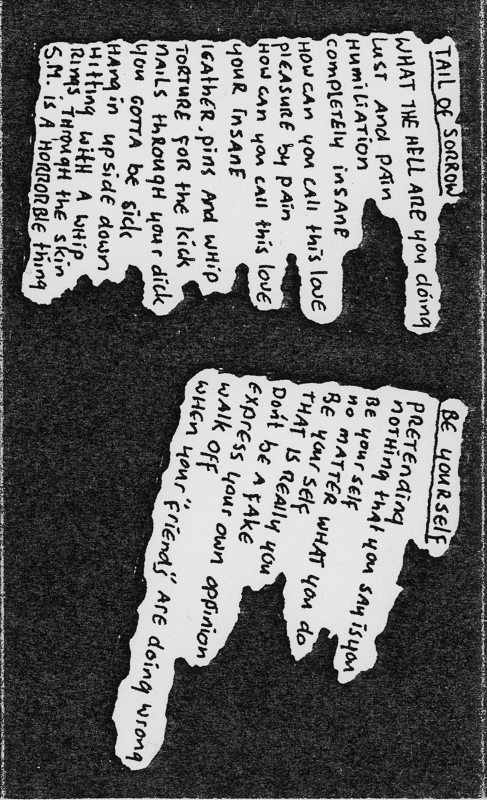 TAIL OF SORROW
WHAT THE HELL ARE you doing
LUST and pAin
HUMiliATION
completely insane
HOW CAN you CAll this love
pleasure by pain
HOW CAN you call this love
YOUR INSANE
leather, pins AND whip
TORTURE FOR the kick
NAILS THROUGH your dick
you GOTTA be sick
HANG in upside down
Hitting with A whip
Rings THROUGH the skin
S.M. is A HORRORBLE thing
BE YOURSELF
PRETENDING
nothing that you say is you
Be yourself
no MATTER what you do
BE yourself
THAT IS REALLY you
Don't be A FAKE
EXPRESS your own oppinion
WALK OFF
WHEN your "friends" ARE doing wrong